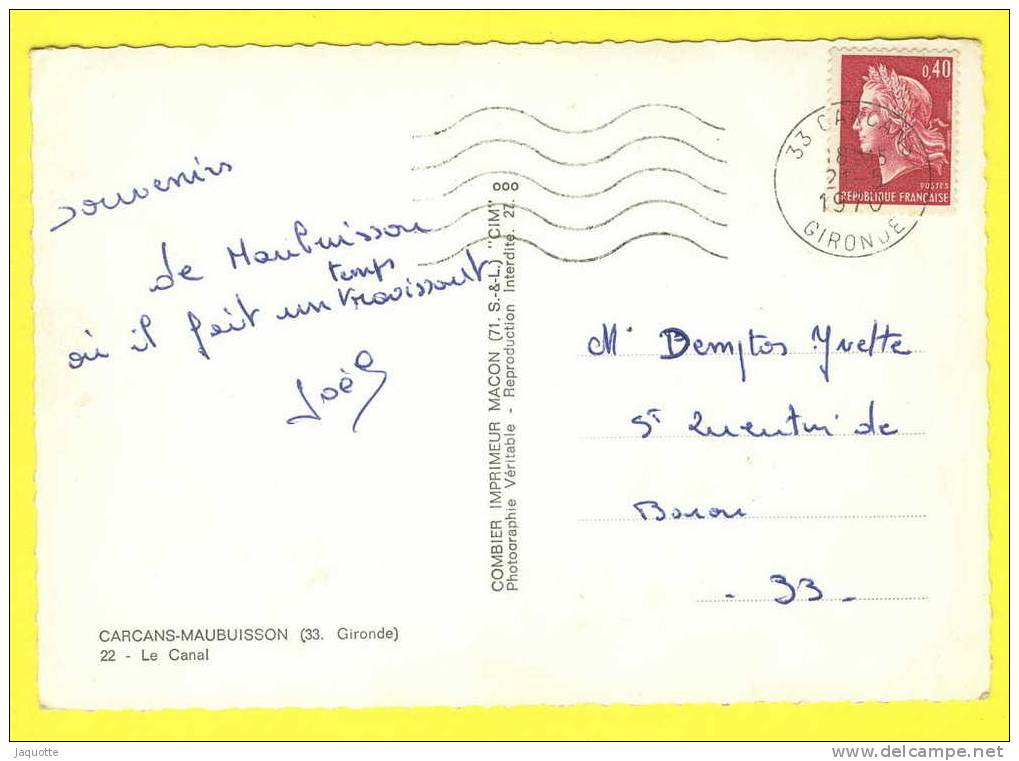 souvenirs
de Maubuisson
temps
où il fait un ravissant
Joël
COMBIER IMPRIMEUR MACON (71. S.-&-L.) "CIM"
Photographie Véritable - Reproduction Interdite. 27.
ooo
CARCANS-MAUBUISSON (33. Gironde)
22 - Le Canal
0,40
POSTES
REPUBLIQUE FRANÇAISE
33 CARCANS
1970
GIRONDE
M Demptos Yvette
St Quentin de
Baron
- 33 -
Jaquotte
www.delcampe.net